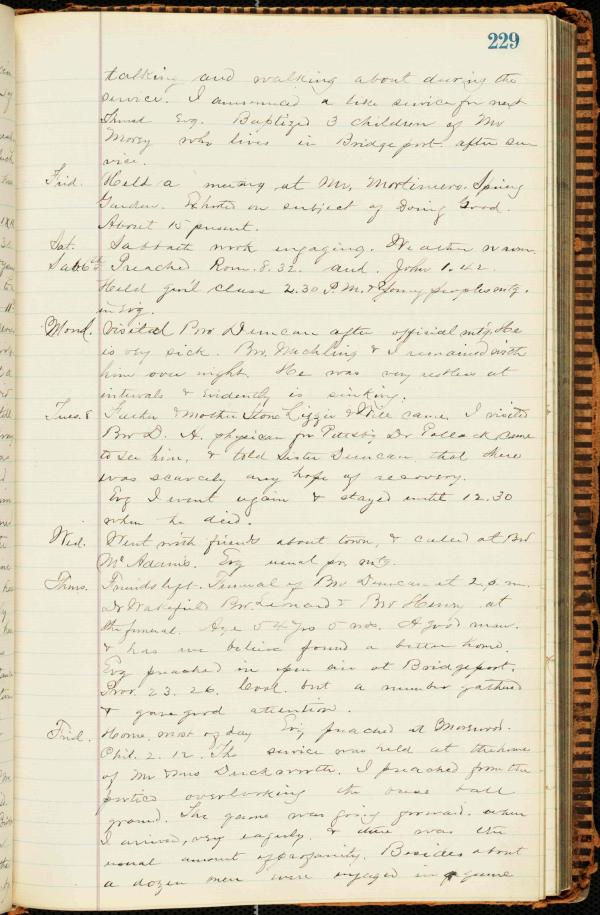 229
talking and walking about during the
service. I announced a like service for next
Thurs Evg. Baptized 3 children of Mr
Morey who lives in Bridgeport after ser
vice.
Frid. Held a meeting at Mr. Mortimers. Spring
Garden. Exhorted on subject of Doing Good.
About 15 present.
Sat. Sabbath work engaging. Weather warm.
Sab. 6th Preached Rom. 8.32. and John 1.42.
Held girl class 2.30 P.M. & Young peoples mtg.
in Evg.
Mond. Visited Bro Duncan after official mtg. He
is very sick. Bro. Machling & I remained with
him over night. He was very restless at
intervals & evidently is sinking.
Tues. 8 Father & Mother Stone Lizzie & Will came. I visited
Bro D. A. physican fr Pittsbg Dr Pollock came
to see him, & told Sister Duncan that there
was scarcely any hope of recovery.
Evg I went again & stayed until 12.30
when he died.
Wed. Went with friends about town, & called at Bro
McAdams. Evg usual pr. mtg.
Thurs. Friends left. Funeral of Bro Duncan at 2 p.m.
Dr Wakefield Bro Leonard & Bro Henry at
the funeral. Age 54 yrs 5 mos. A good man.
& has we believe found a better home.
Evg preached in open air at Bridgeport.
Prov. 23. 26. Cool. but a number gathered
& gave good attention.
Frid. Home most of day Evg preached at
Phil. 2. 12. The service was held at the home
of Mr & Mrs Duckworth. I preached from the
portico overlooking the base ball
ground. The game was going forward when
I arrived, very eagerly, & there was the
usual amount of profanity. Besides about
a dozen men were engaged in a game